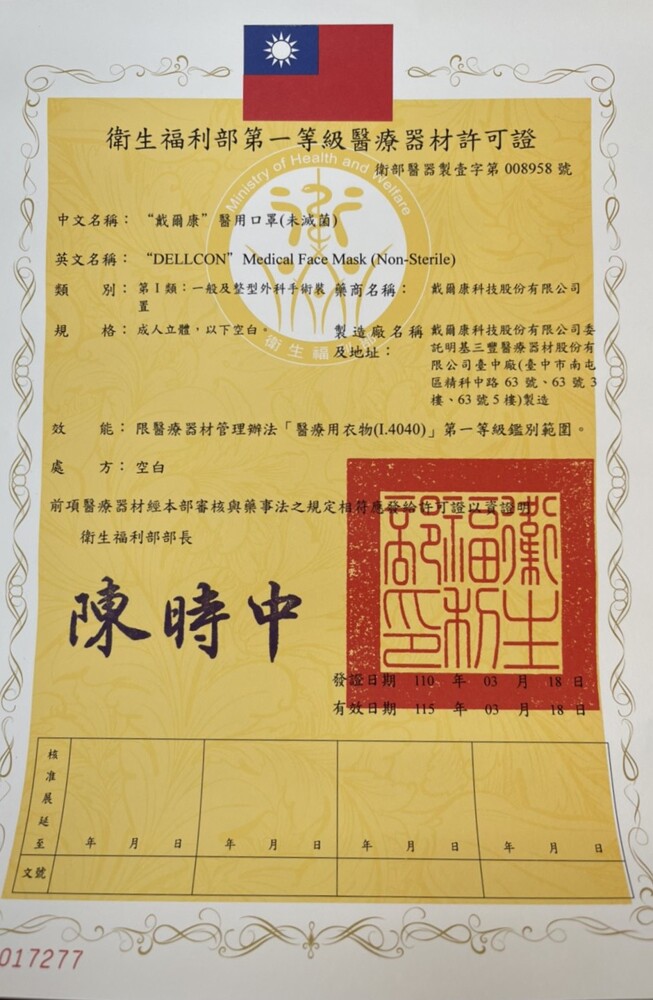 衛生福利部第一等級醫療器材許可證
衛部醫器製壹字第 008958 號
Ministry of Health and Welfare
中文名稱：“戴爾康”醫用口罩(未滅菌)
英文名稱：“DELLCON” Medical Face Mask (Non-Sterile)
類 別：第 I 類：一般及整型外科手術裝置
藥商名稱：戴爾康科技股份有限公司
規 格：成人立體，以下空白。
製造廠名稱及地址：戴爾康科技股份有限公司委
託明基三豐醫療器材股份有
限公司臺中廠(臺中市南屯
區精科中路 63 號、63 號 3
樓、63 號 5 樓)製造
衛生福
效 能：限醫療器材管理辦法「醫療用衣物(I.4040)」第一等級鑑別範圍。
處 方：空白
前項醫療器材經本部審核與藥事法之規定相符應發給許可證以資證明
衛生福利部部長
陳時中
衛生福利部印
發證日期 110 年 03 月 18 日
有效日期 115 年 03 月 18 日
核准展延至
年 月 日
年 月 日
年 月 日
年 月 日
文號
017277